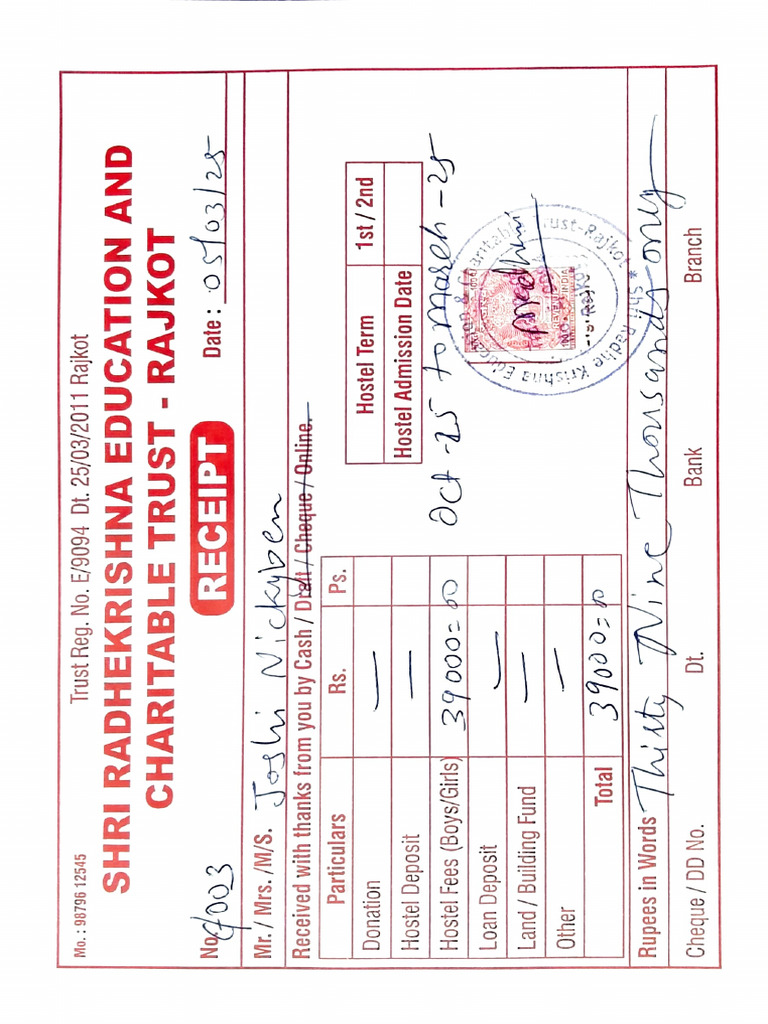 Mo. : 98796 12545 Trust Reg. No. E/9094 Dt. 25/03/2011 Rajkot
SHRI RADHEKRISHNA EDUCATION AND
CHARITABLE TRUST - RAJKOT
No. RECEIPT Date : 05/03/25
Mr. / Mrs. /M/S. Joshi Nickyben
Received with thanks from you by Cash / Draft / Cheque / Online.
Particulars Rs. Ps.
Donation —
Hostel Deposit —
Hostel Fees (Boys/Girls) 39000=00
Loan Deposit —
Land / Building Fund —
Other —
Total 39000=00
Hostel Term 1st / 2nd
Hostel Admission Date
Oct-25 to March-25
Shri Radhe Krishna Education & Charitable Trust-Rajkot
Rupees in Words Thirty Nine Thousands only
Cheque / DD No. Dt. Bank Branch